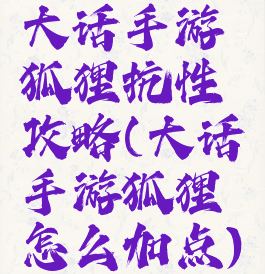 大话手游
狐狸抗性
攻略(大话
手游狐狸
怎么加点)